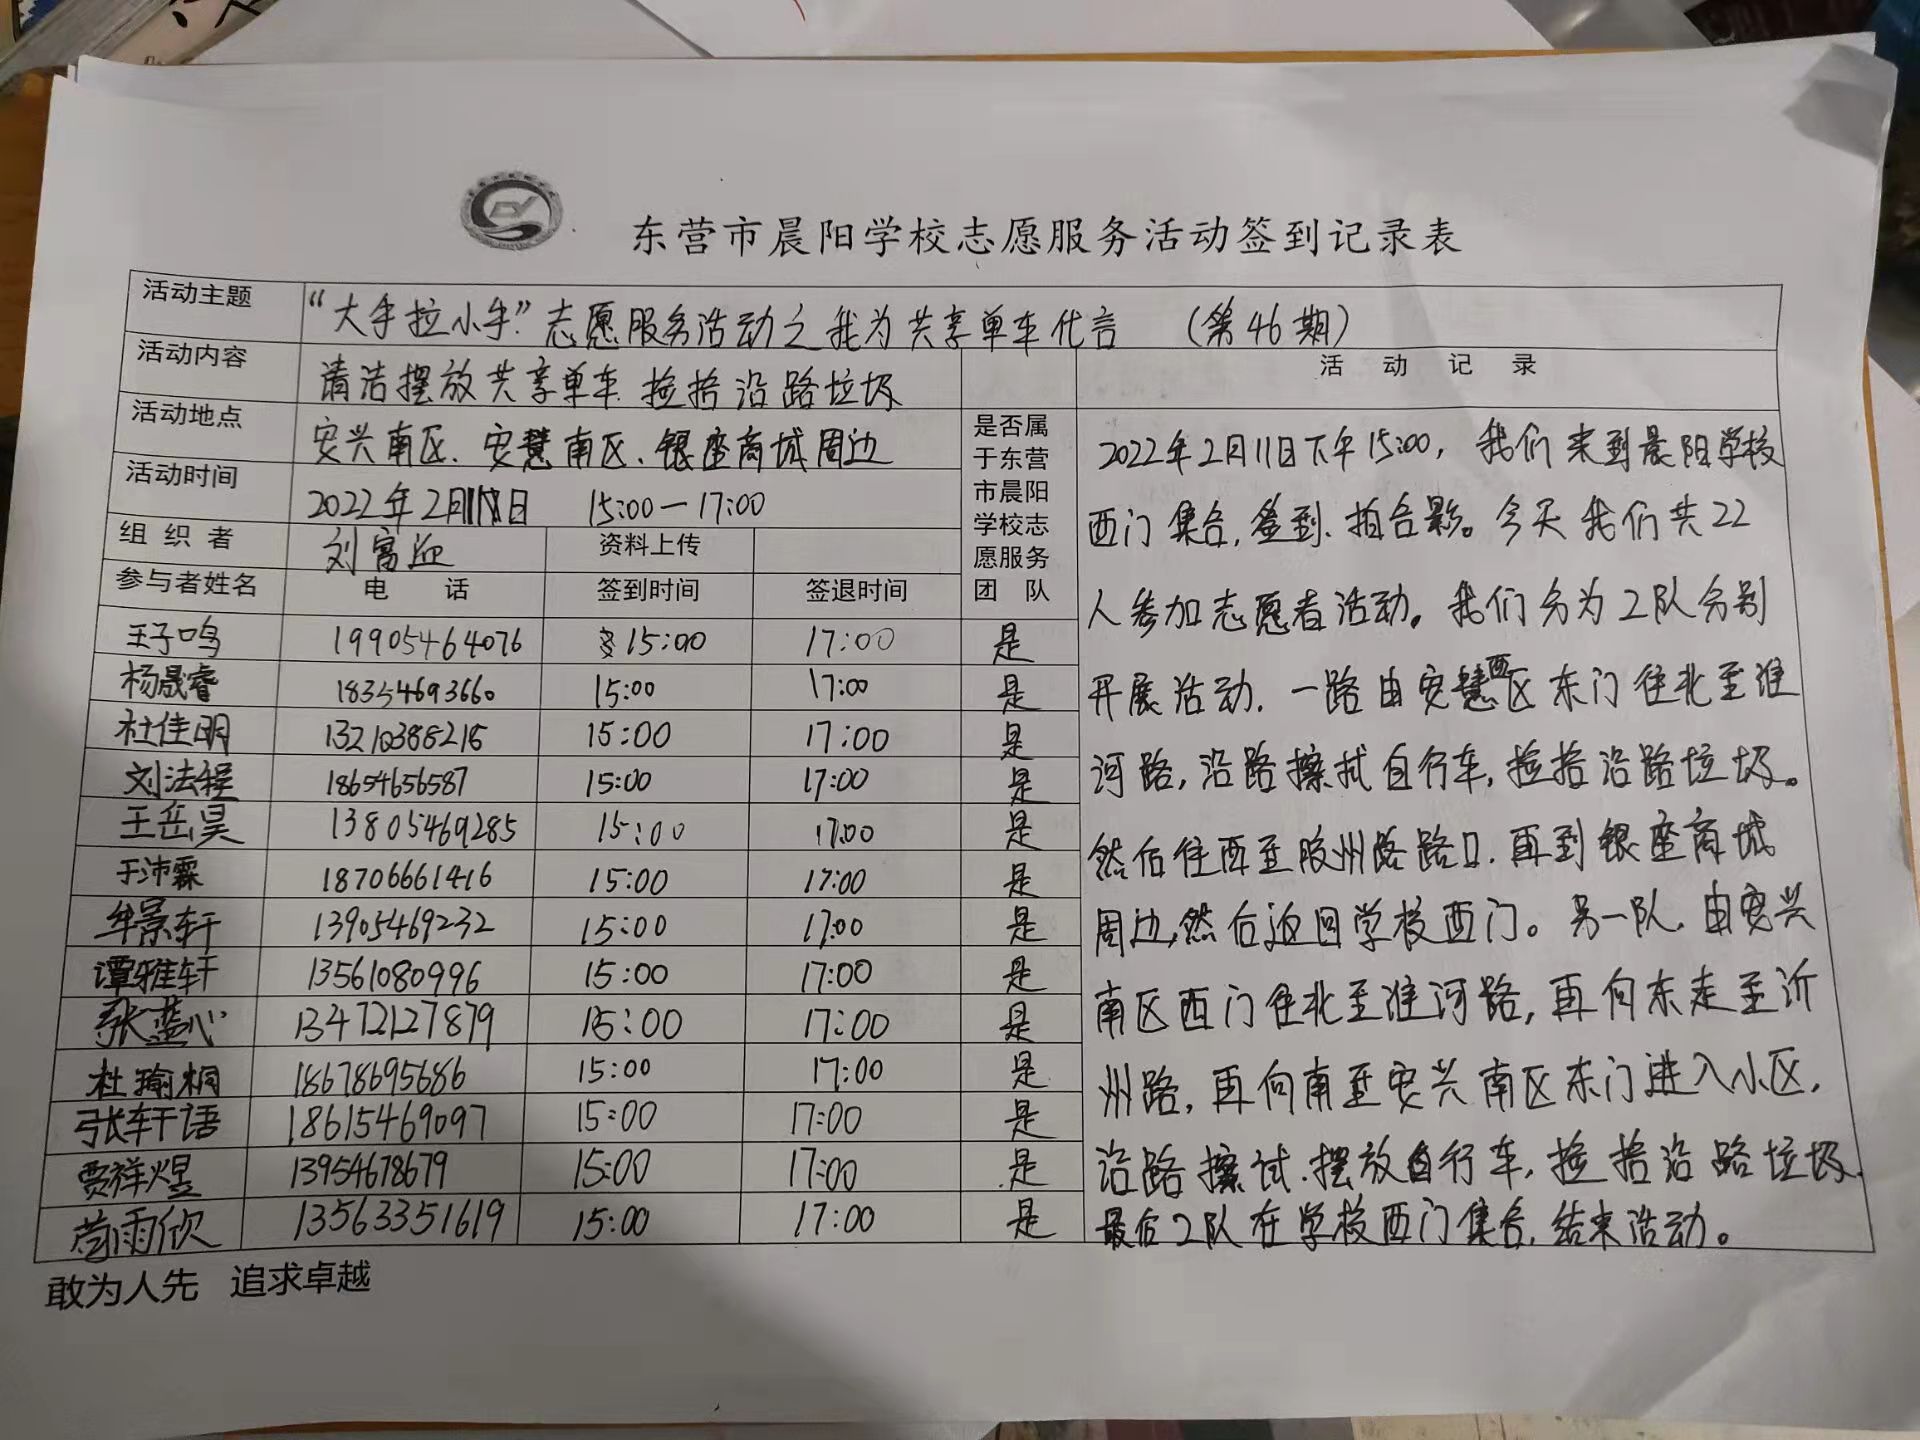 东营市晨阳学校志愿服务活动签到记录表
活动主题 “大手拉小手”志愿服务活动之我为共享单车代言 （第46期）
活动内容 清洁摆放共享单车 捡拾沿路垃圾
活动地点 安兴南区、安慧南区、银座商城周边
活动时间 2022年2月11日 15:00—17:00
组织者 刘富 资料上传
参与者姓名 电话 签到时间 签退时间
是否属
于东营
市晨阳
学校志
愿服务
团队
王子鸣 19905464076 15:00 17:00 是
杨晟睿 18354693660 15:00 17:00 是
杜佳明 13210388216 15:00 17:00 是
刘法程 18654656587 15:00 17:00 是
王岳昊 13805469285 15:00 17:00 是
于沛霖 18706661416 15:00 17:00 是
牟景轩 13905469232 15:00 17:00 是
谭雅轩 13561080996 15:00 17:00 是
张蓝心 13472127879 15:00 17:00 是
杜瑜桐 18678695686 15:00 17:00 是
张轩语 18615469097 15:00 17:00 是
贾祥煜 13954678679 15:00 17:00 是
苟雨欣 13563351619 15:00 17:00 是
活动记录
2022年2月11日下午15:00，我们来到晨阳学校
西门集合，签到、拍合影。今天我们共22
人参加志愿者活动。我们分为2队分别
开展活动，一路由安慧西区东门往北至淮
河路，沿路擦拭自行车，捡拾沿路垃圾。
然后往西至胶州路路口，再到银座商城
周边，然后返回学校西门。另一队，由安兴
南区西门往北至淮河路，再向东走至沂
州路，再向南至安兴南区东门进入小区，
沿路擦试、摆放自行车，捡拾沿路垃圾，
最后2队在学校西门集合，结束活动。
敢为人先 追求卓越